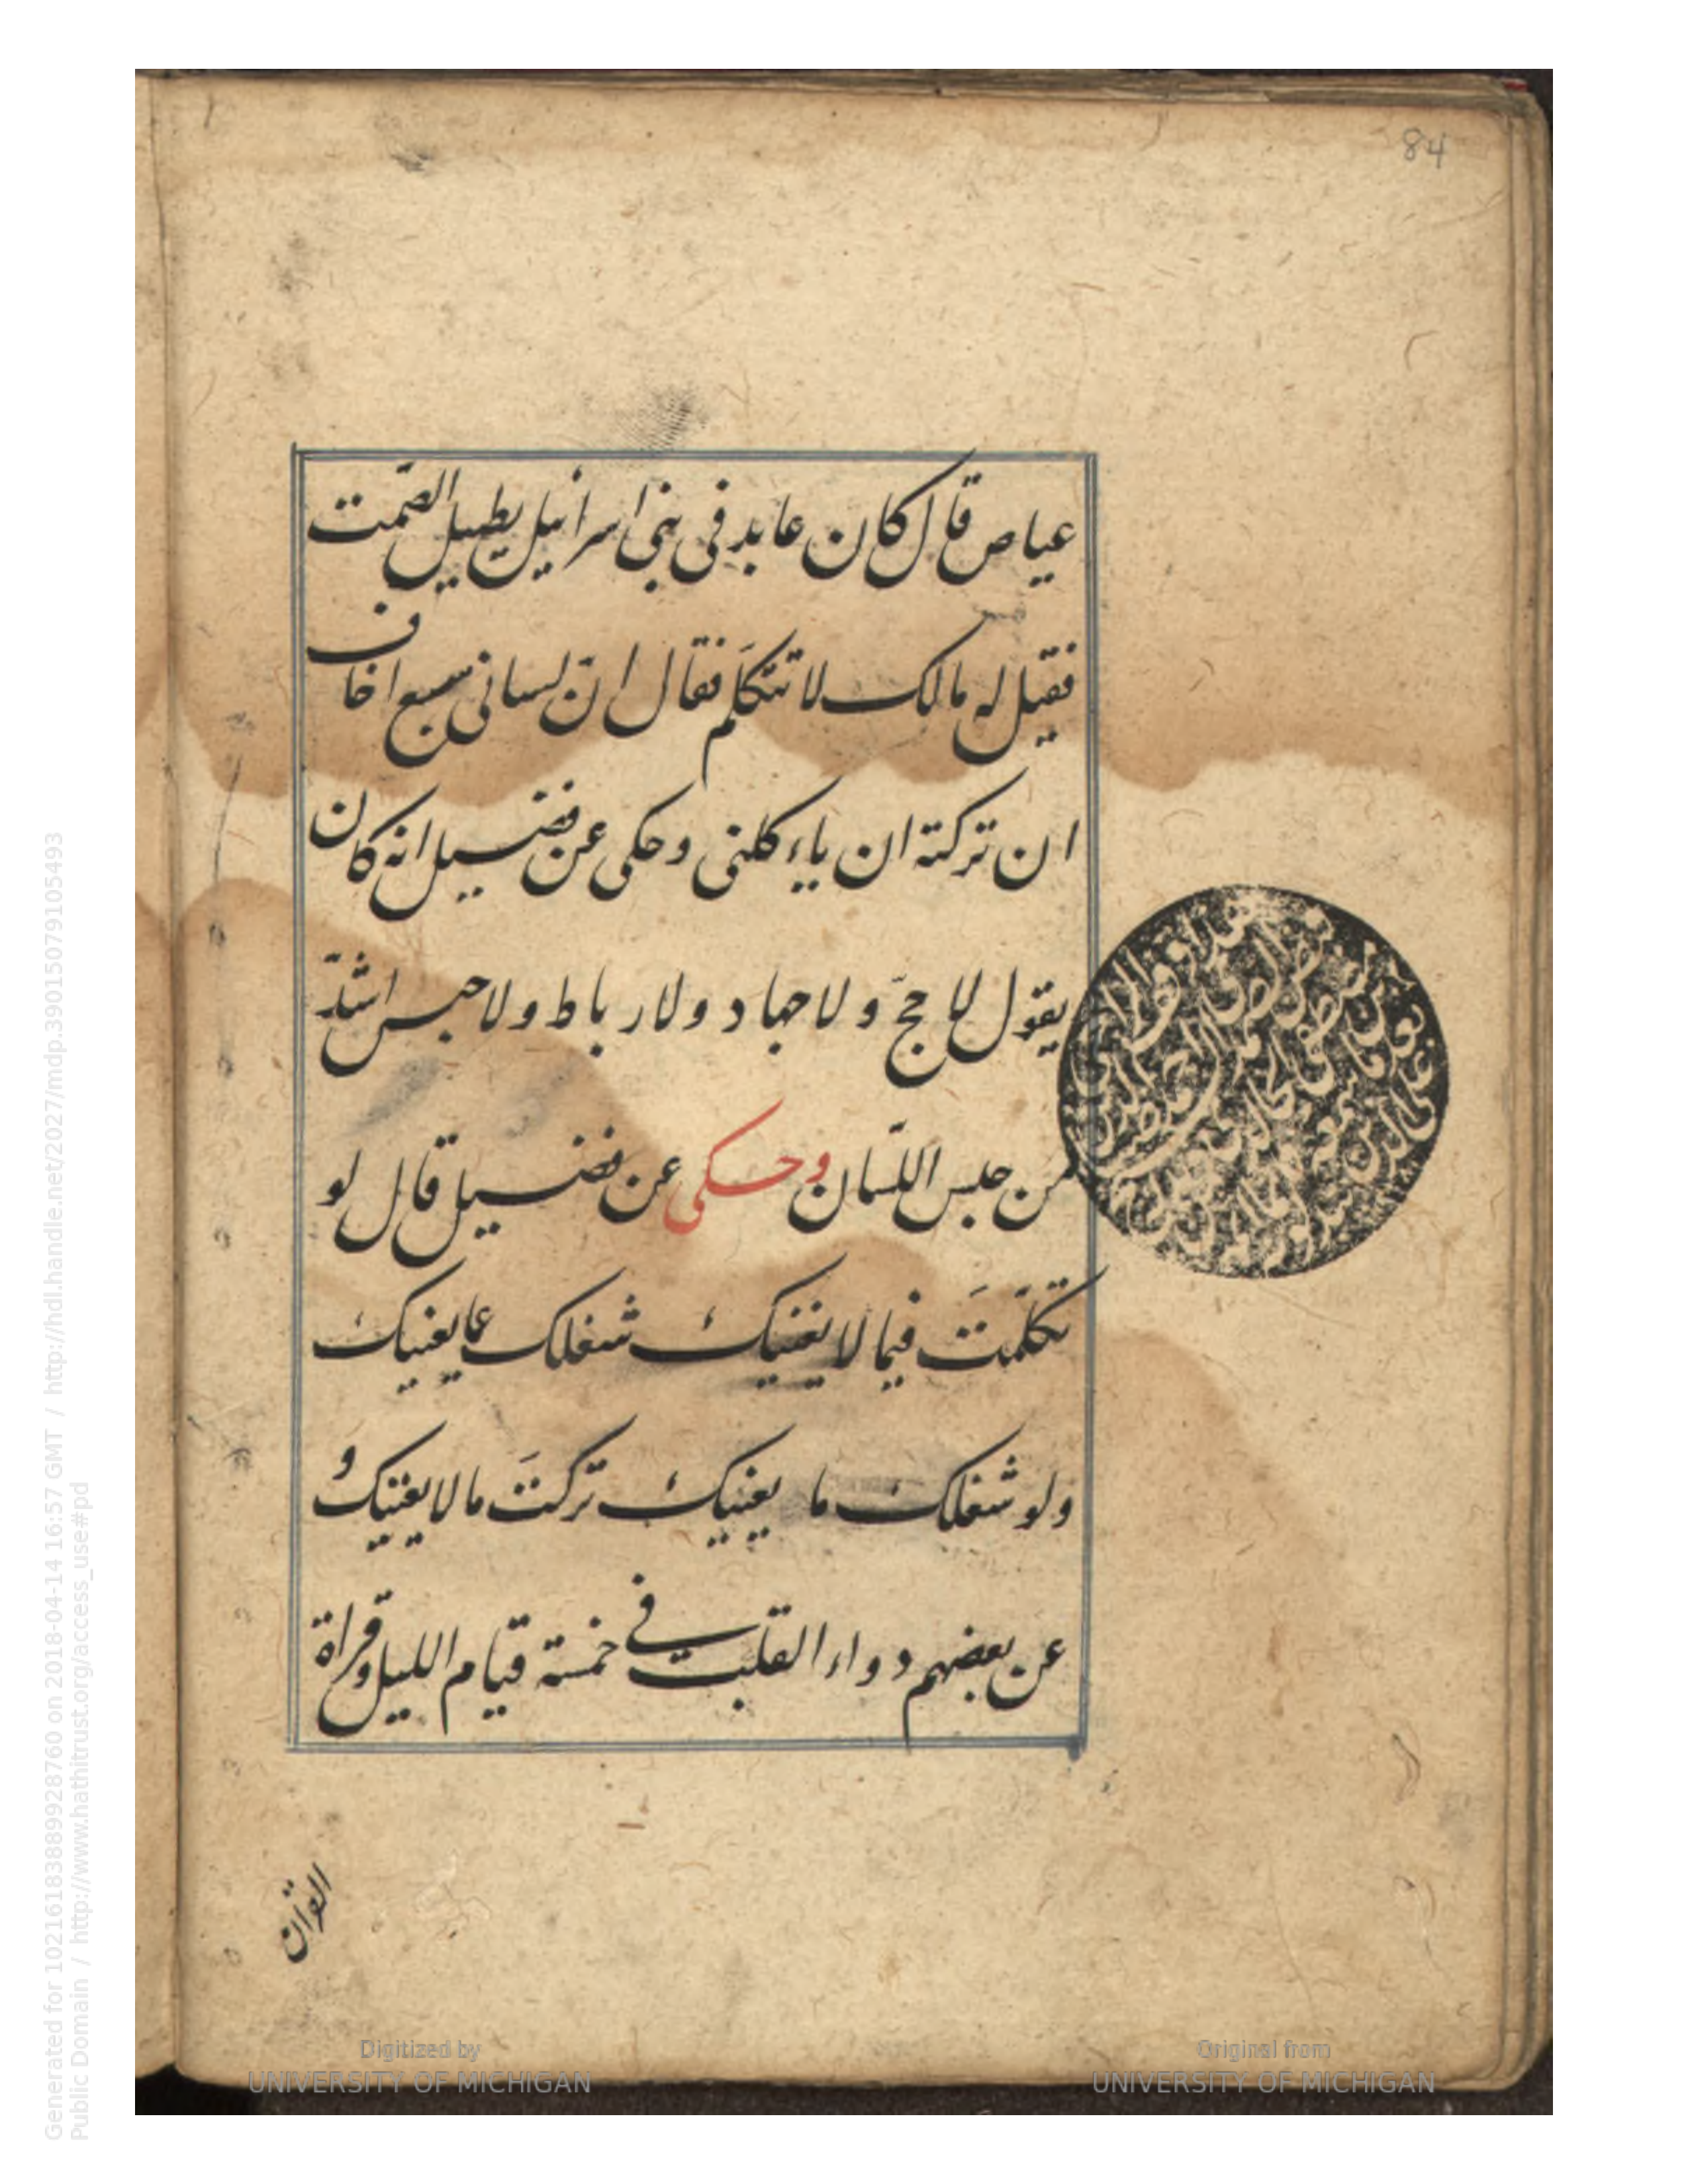 84
عياص قال كان عابد فى بنى اسرائيل يطيل الصّمت
فقيل له مالك لا تتكلّم فقال انّ لسانى سبع اخاف
ان تركته ان ياءكلنى وحكى عن فضيل انه كان
يقول لا حجّ ولا جهاد ولا رباط ولا حبس اشدّ
من حبس اللّسان وحكى عن فضيل قال لو
تكلّمتَ فيما لا يغنيك شغلك عما يعنيك
ولو شغلك ما يعنيك تركتَ ما لا يعنيك و
عن بعضهم دواء القلب فى خمسة قيام الليل وقراة
القران
Digitized by
UNIVERSITY OF MICHIGAN
Original from
UNIVERSITY OF MICHIGAN
Generated for 102161838899928760 on 2018-04-14 16:57 GMT / http://hdl.handle.net/2027/mdp.39015079105493
Public Domain / http://www.hathitrust.org/access_use#pd